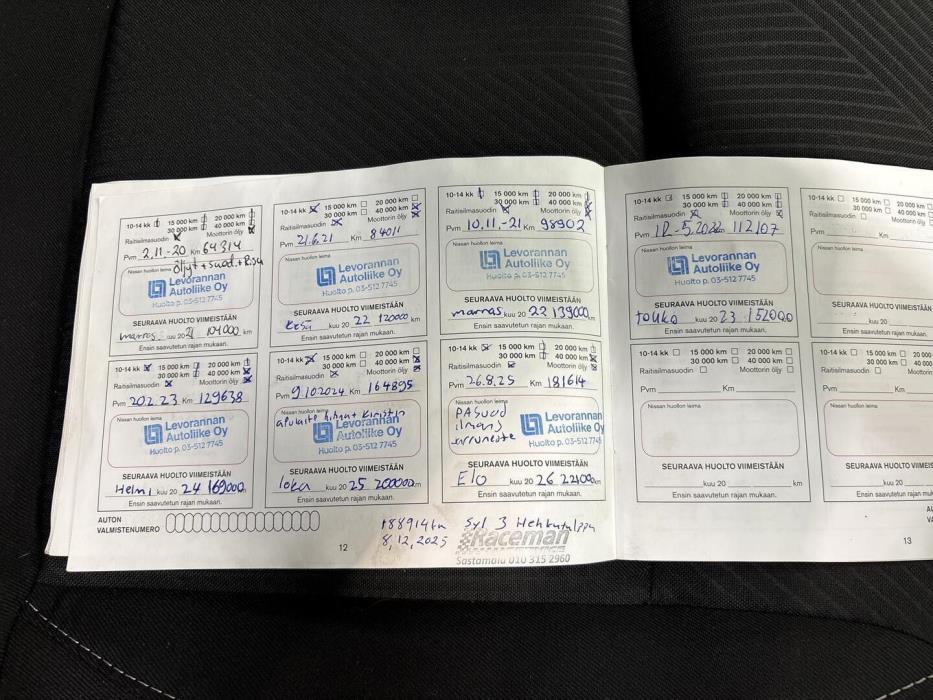 10-14 kk 15 000 km 20 000 km
30 000 km 40 000 km
Raitisilmasuodin Moottorin öljy
Pvm 2.11.-20 Km 64314
Nissan huollon leima
öljyt + suod.
Levorannan
Autoliike Oy
Huolto p. 03-512 7745
SEURAAVA HUOLTO VIIMEISTÄÄN
marras kuu 20 21 104000 km
Ensin saavutetun rajan mukaan.
10-14 kk 15 000 km 20 000 km
30 000 km 40 000 km
Raitisilmasuodin Moottorin öljy
Pvm 21.6.21 Km 84011
Nissan huollon leima
Levorannan
Autoliike Oy
Huolto p. 03-512 7745
SEURAAVA HUOLTO VIIMEISTÄÄN
Kesä kuu 20 22 120000 km
Ensin saavutetun rajan mukaan.
10-14 kk 15 000 km 20 000 km
30 000 km 40 000 km
Raitisilmasuodin Moottorin öljy
Pvm 10.11.-21 Km 98902
Nissan huollon leima
Levorannan
Autoliike Oy
Huolto p. 03-512 7745
SEURAAVA HUOLTO VIIMEISTÄÄN
marras kuu 20 22 139000 km
Ensin saavutetun rajan mukaan.
10-14 kk 15 000 km 20 000 km
30 000 km 40 000 km
Raitisilmasuodin Moottorin öljy
Pvm 20 2. 23 Km 129638
Nissan huollon leima
Levorannan
Autoliike Oy
Huolto p. 03-512 7745
SEURAAVA HUOLTO VIIMEISTÄÄN
Helmi kuu 20 24 169000 km
Ensin saavutetun rajan mukaan.
10-14 kk 15 000 km 20 000 km
30 000 km 40 000 km
Raitisilmasuodin Moottorin öljy
Pvm 9.10 2024 Km 164895
Nissan huollon leima
apulaite hihnat + kiristin
Levorannan
Autoliike Oy
Huolto p. 03-512 7745
SEURAAVA HUOLTO VIIMEISTÄÄN
loka kuu 20 25 200000 km
Ensin saavutetun rajan mukaan.
10-14 kk 15 000 km 20 000 km
30 000 km 40 000 km
Raitisilmasuodin Moottorin öljy
Pvm 26.8.25 Km 181614
Nissan huollon leima
PAsuod
ilmans
Levorannan
Autoliike Oy
Huolto p. 03-512 7745
SEURAAVA HUOLTO VIIMEISTÄÄN
Elo kuu 20 26 221000 km
Ensin saavutetun rajan mukaan.
AUTON
VALMISTENUMERO
188914km Syl 3 Hehkutulppa
8,12,2025
Raceman
Sastamala 010 315 2960
12
10-14 kk 15 000 km 20 000 km
30 000 km 40 000 km
Raitisilmasuodin Moottorin öljy
Pvm 12-5.2022 112107
Nissan huollon leima
Levorannan
Autoliike Oy
Huolto p. 03-512 7745
SEURAAVA HUOLTO VIIMEISTÄÄN
touko kuu 20 23 152000
Ensin saavutetun rajan mukaan.
10-14 kk 15 000 km 20 000
30 000 km 40 000
Raitisilmasuodin Moottorin
Pvm Km
Nissan huollon leima
SEURAAVA HUOLTO VIIMEISTÄÄN
kuu 20
Ensin saavutetun rajan mukaan.
10-14 kk 15 000 km 20 000 km
30 000 km 40 000 km
Raitisilmasuodin Moottorin öljy
Pvm Km
Nissan huollon leima
SEURAAVA HUOLTO VIIMEISTÄÄN
kuu 20 km
Ensin saavutetun rajan mukaan.
10-14 kk 15 000 km 20 000
30 000 km 40 000
Raitisilmasuodin Moottorin
Pvm Km
Nissan huollon leima
SEURAAVA HUOLTO VIIMEIS
kuu 20
Ensin saavutetun rajan mukaan
13